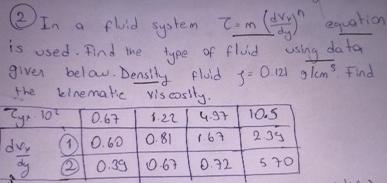 ② In a fluid system τ = m (dVx/dy)ⁿ equation
is used. Find the type of fluid using data
given below. Density fluid ρ = 0.121 g/cm³. Find
the kinematic viscosity.
τyx·10² 0.67 1.22 4.97 10.5
dVx ① 0.60 0.81 1.67 2.39
dy ② 0.39 0.67 0.72 5.70